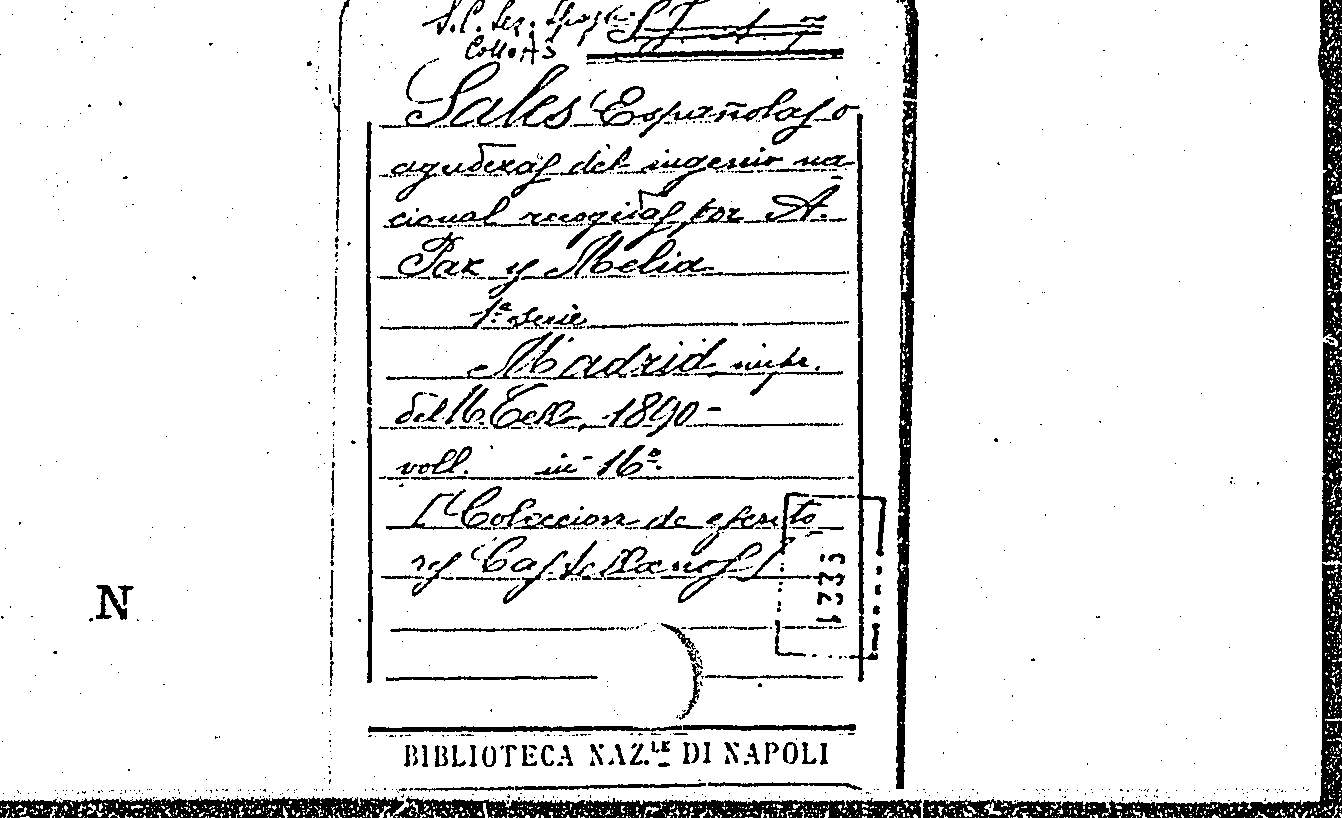 Coll. A 5
Sales Españolas o
agudezas del ingenio na-
cional recogidas por A.
Paz y Melia
1ª serie
Madrid, impr.
del M. Tello, 1890-
voll. in-16º.
[Coleccion de escrito-
res Castellanos]
1233
N
BIBLIOTECA NAZ.LE DI NAPOLI